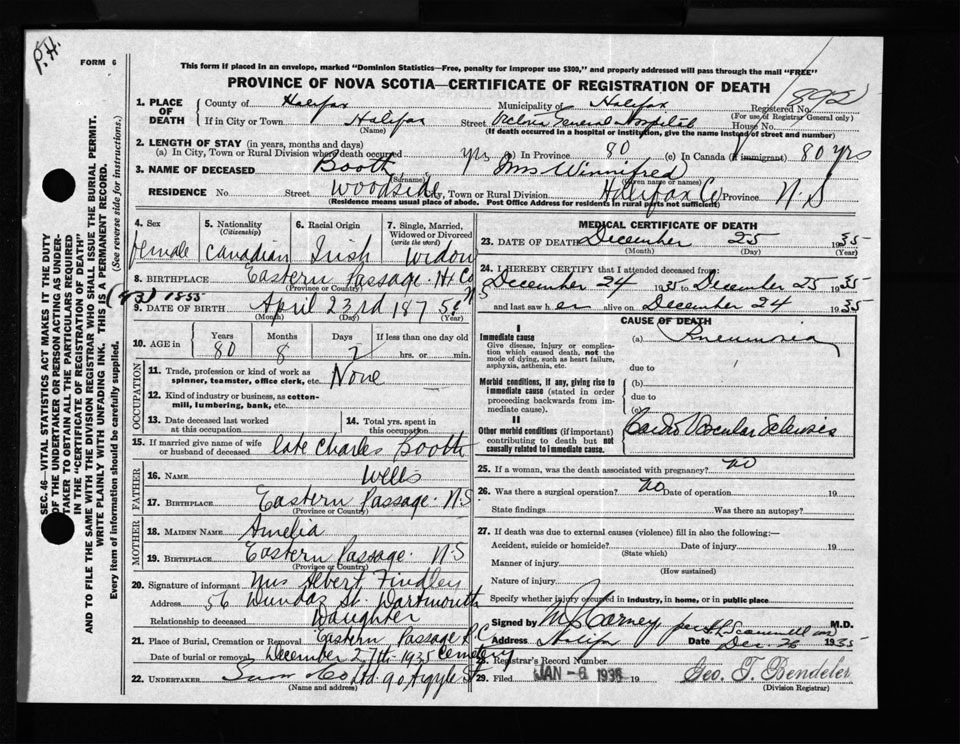 P.H.
FORM 6
This form if placed in an envelope, marked "Dominion Statistics—Free, penalty for improper use $300," and properly addressed will pass through the mail "FREE"
PROVINCE OF NOVA SCOTIA—CERTIFICATE OF REGISTRATION OF DEATH
1. PLACE OF DEATH { County of Halifax Municipality of Halifax Registered No. 892
If in City or Town Halifax Street Victoria General Hospital House No. (For use of Registrar General only)
(Name) (If death occurred in a hospital or institution, give the name instead of street and number)
2. LENGTH OF STAY (in years, months and days)
(a) In City, Town or Rural Division where death occurred yrs (b) In Province 80 (c) In Canada (if immigrant) 80 yrs
3. NAME OF DECEASED Booth Mrs Winnifred
(Surname) (Given name or names)
RESIDENCE No. Street Woodside City, Town or Rural Division Halifax Co Province N.S
(Residence means usual place of abode. Post Office Address for residents in rural parts not sufficient)
4. Sex 5. Nationality (Citizenship) 6. Racial Origin 7. Single, Married, Widowed or Divorced (write the word)
female Canadian Irish Widow
8. BIRTHPLACE Eastern Passage Hx Co N S
(Province or Country)
1855
9. DATE OF BIRTH April 23rd 1875
(Month) (Day) (Year)
10. AGE in { Years Months Days If less than one day old
80 8 2 hrs. or min.
OCCUPATION
11. Trade, profession or kind of work as spinner, teamster, office clerk, etc. None
12. Kind of industry or business, as cotton-mill, lumbering, bank, etc.
13. Date deceased last worked at this occupation 14. Total yrs. spent in this occupation
15. If married give name of wife or husband of deceased late Charles Booth
FATHER
16. NAME Wells
17. BIRTHPLACE Eastern Passage. N.S.
(Province or Country)
MOTHER
18. MAIDEN NAME Amelia
19. BIRTHPLACE Eastern Passage. N.S
(Province or Country)
20. Signature of informant Mrs Albert Findley
Address 56 Dundas St. Dartmouth
Relationship to deceased Daughter
21. Place of Burial, Cremation or Removal Eastern Passage R.C. Cemetery
Date of burial or removal December 27th 1935
22. UNDERTAKER Snow Co Ltd 90 Argyle St
(Name and address)
MEDICAL CERTIFICATE OF DEATH
23. DATE OF DEATH December 25 1935
(Month) (Day) (Year)
24. I HEREBY CERTIFY that I attended deceased from:
December 24 1935 to December 25 1935
and last saw her alive on December 24 1935
CAUSE OF DEATH
I
Immediate cause (a) Pneumonia
Give disease, injury or complication which caused death, not the mode of dying, such as heart failure, asphyxia, asthenia, etc.
due to
Morbid conditions, if any, giving rise to immediate cause (stated in order proceeding backwards from immediate cause).
(b)
due to
(c)
II
Other morbid conditions (if important) contributing to death but not causally related to immediate cause.
Cardio Vascular Sclerosis
25. If a woman, was the death associated with pregnancy? no
26. Was there a surgical operation? no Date of operation 19
State findings Was there an autopsy?
27. If death was due to external causes (violence) fill in also the following:—
Accident, suicide or homicide? Date of injury 19
(State which)
Manner of injury
(How sustained)
Nature of injury
Specify whether injury occurred in industry, in home, or in public place
Signed by Carney per M.D.
Address Halifax Date Dec. 26 1935
28. Registrar's Record Number
29. Filed JAN -6 1936 Geo. T. Bendeler
(Division Registrar)
SEC. 46—VITAL STATISTICS ACT MAKES IT THE DUTY
OF THE UNDERTAKER OR PERSON ACTING AS UNDER-
TAKER TO OBTAIN ALL THE PARTICULARS REQUIRED
IN THE "CERTIFICATE OF REGISTRATION OF DEATH"
AND TO FILE THE SAME WITH THE DIVISION REGISTRAR WHO SHALL ISSUE THE BURIAL PERMIT.
WRITE PLAINLY WITH UNFADING INK. THIS IS A PERMANENT RECORD.
Every item of information should be carefully supplied. (See reverse side for instructions.)